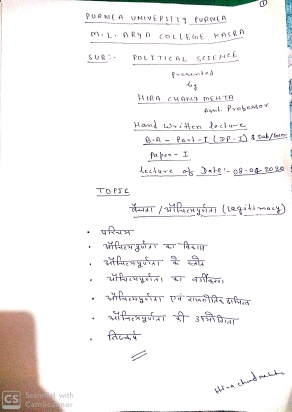 ①
PURNEA UNIVERSITY PURNEA
M.L. ARYA COLLEGE KASBA
SUB:- POLITICAL SCIENCE
Presented
by
HIRA CHAND MEHTA
Asst. Professor
Hand written lecture
B.A- Part-I (DP-I) & Sub/Gen
Paper- I
lecture of Date:- 08-04-2020
TOPIC
वैधता /औचित्यपूर्णता (Legitimacy)
• परिचय
• औचित्यपूर्णता का विकास
• औचित्यपूर्णता के स्रोत
• औचित्यपूर्णता का वर्गीकरण
• औचित्यपूर्णता एवं राजनीतिक
• औचित्यपूर्णता की उपयोगिता
• निष्कर्ष
Hira chand mehta
CS Scanned with
CamScanner